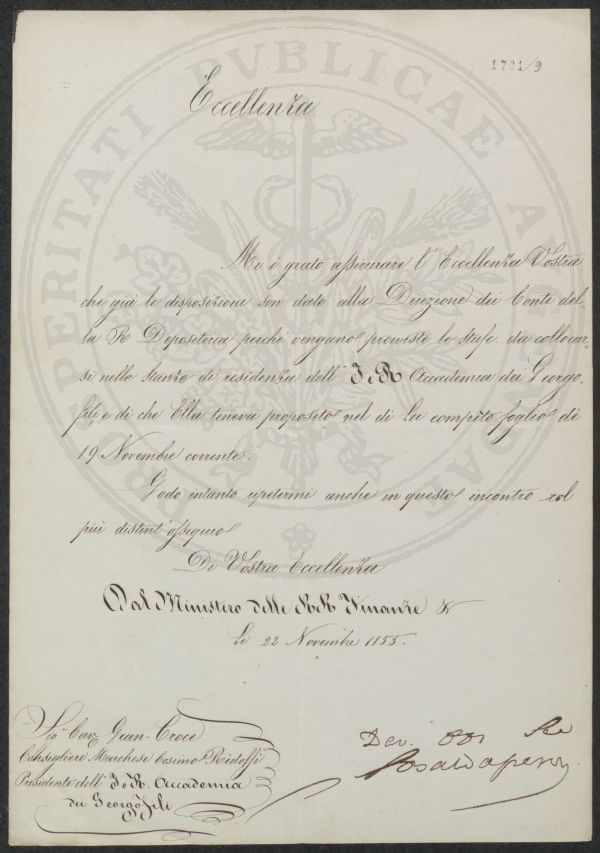 1791/9
Eccellenza
Me è grato assicurare l'Eccellenza Vostra
che già le disposizioni son date alla Direzione dei Conti del
la R Depositeria perchè vengano provviste le stufe da collocar,
si nelle stanze di residenza dell' I e R Accademia dei Georgo,
fili e di che Ella teneva proposito nel di Lei compito foglio di
19 Novembre corrente.
Godo intanto ripetermi anche in questo incontro col
più distint' ossequio
Di Vostra Eccellenza
Dal Ministero delle RR Finanze
Li 22 Novembre 1855.
Sigr Cavr Gran-Croce
Consigliere Marchese Cosimo Ridolfi
Presidente dell' I e R. Accademia
dei Georgofili
Dev.
PROSPERITATI PVBLICAE AVGENDAE